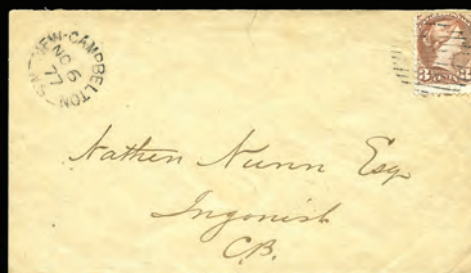 NEW-CAMPBELTON N.S.
NO 6
77
3 CENTS 3
Nathen Nunn Esq
Ingonish
C.B.